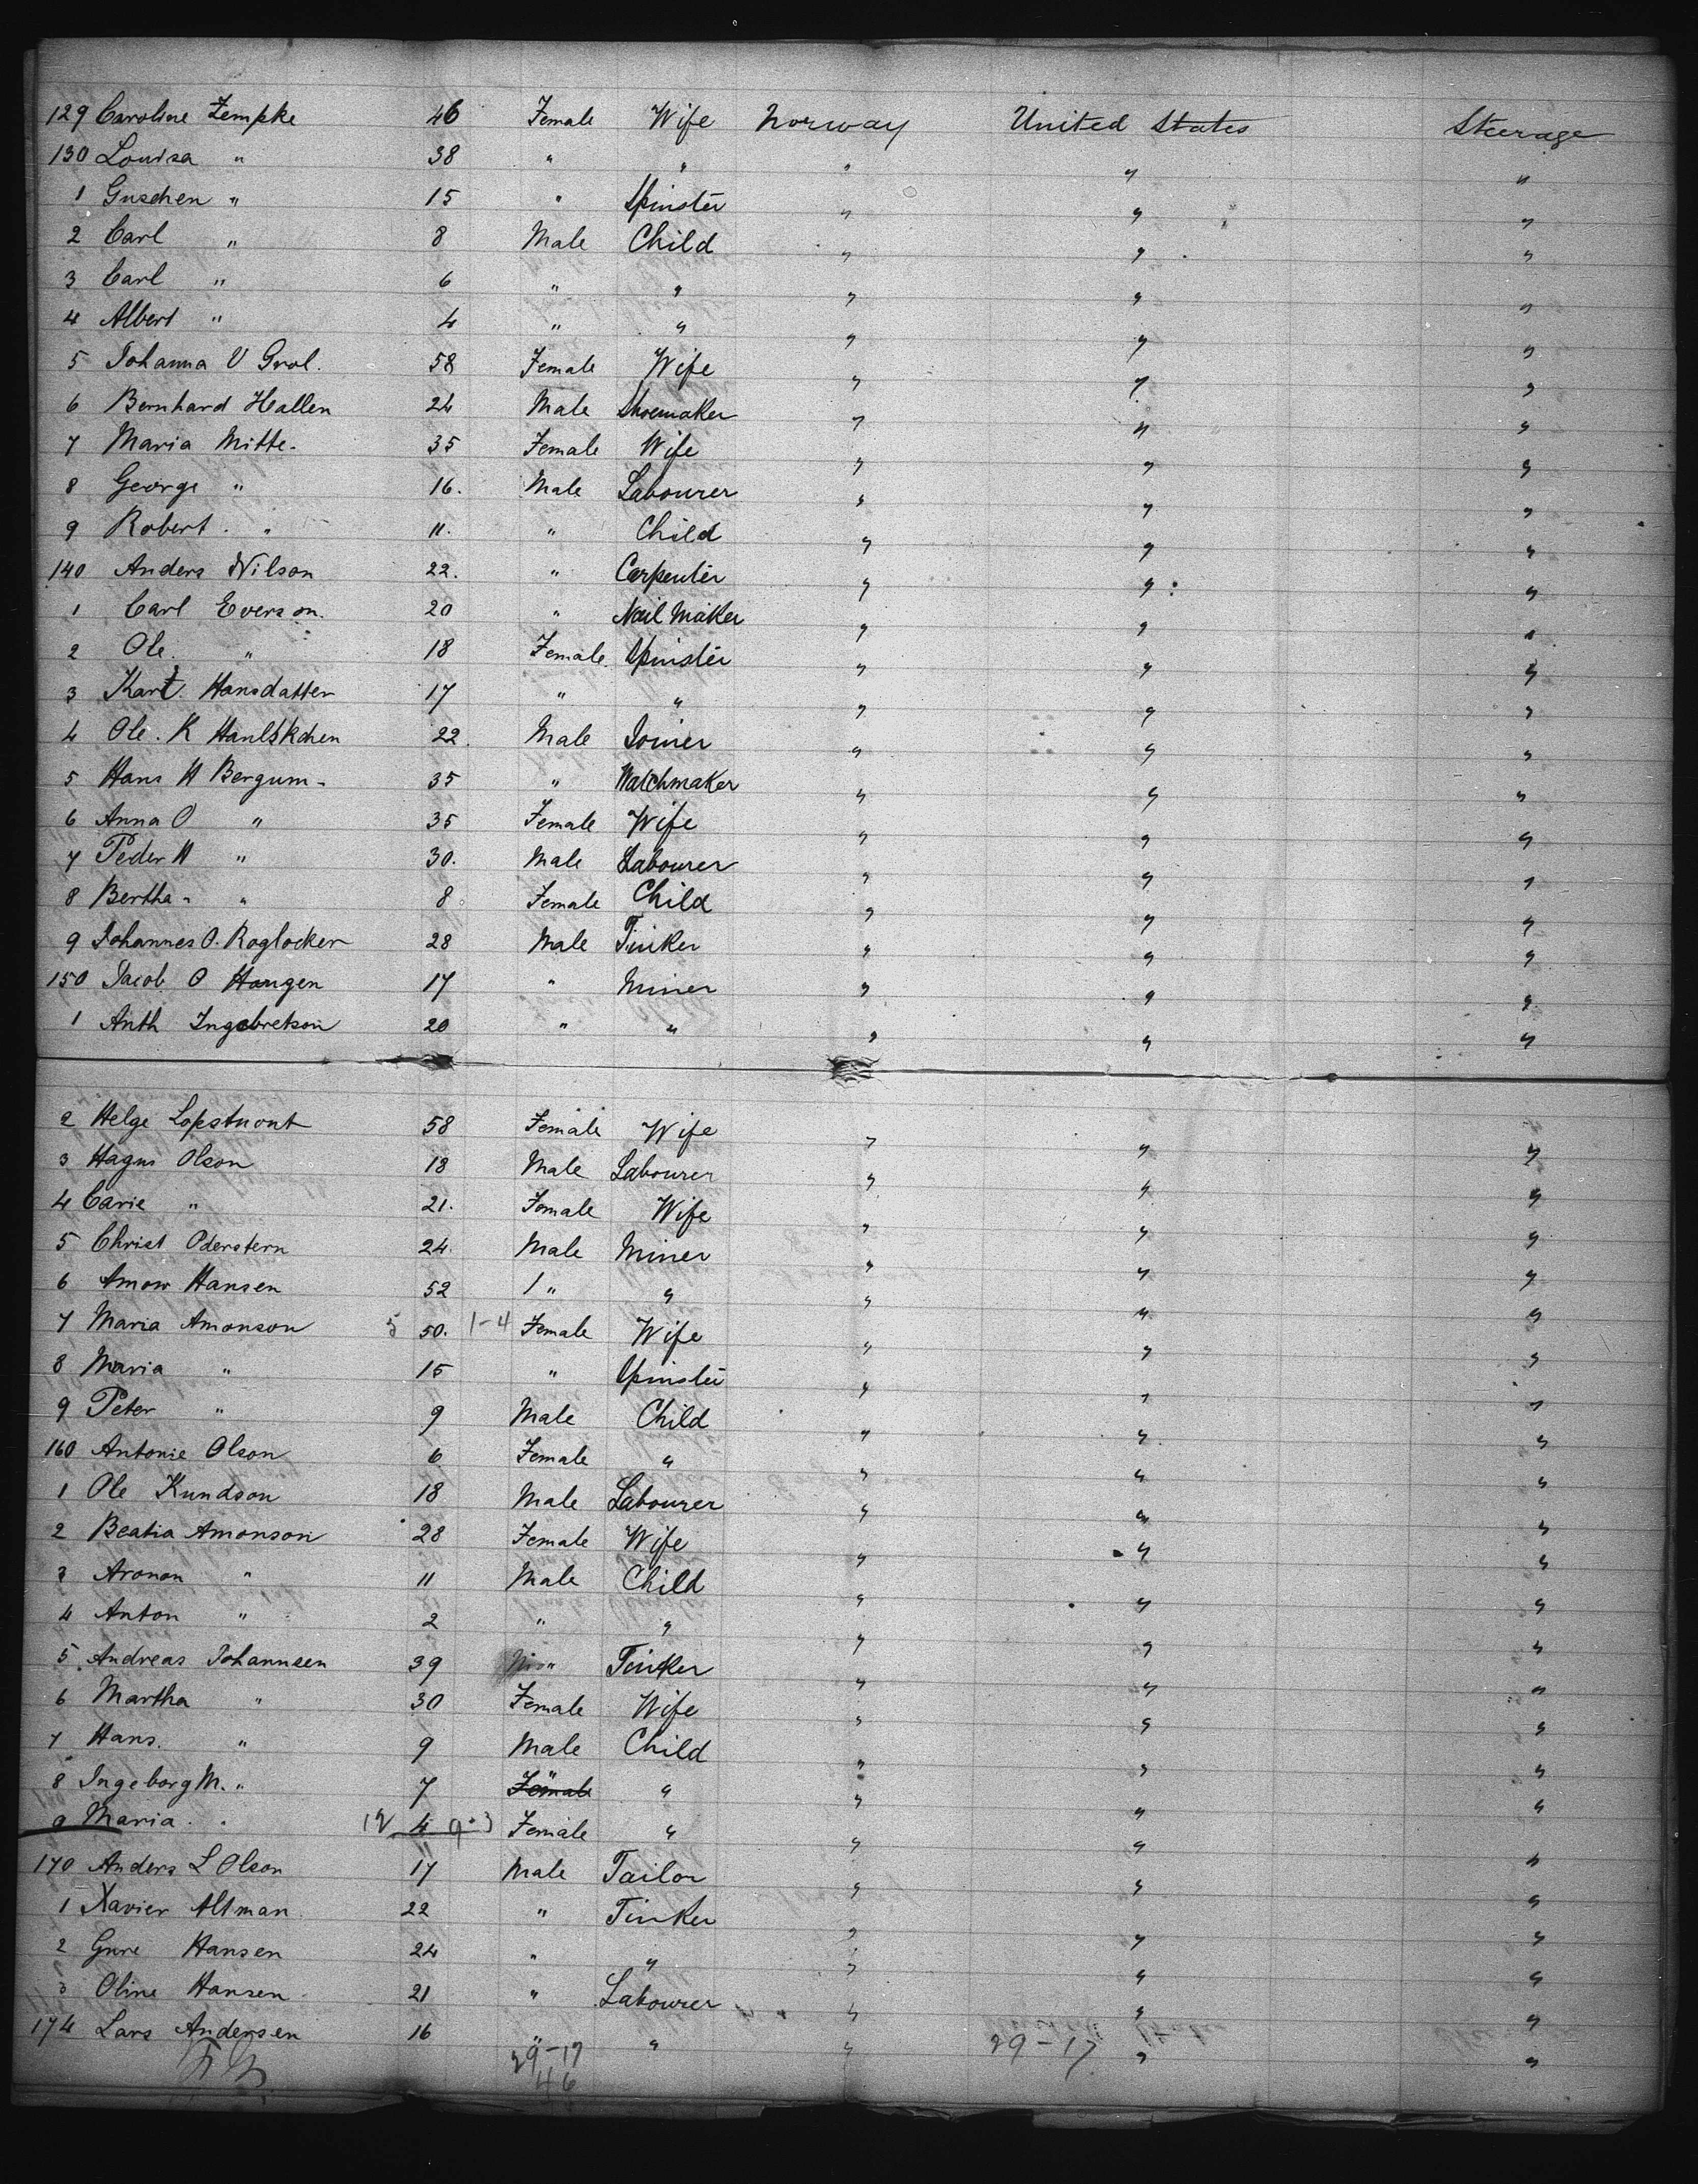 129 Caroline Zempke 46 Female Wife Norway United States Steerage
130 Louisa " 38 " " " " "
1 Guschen " 15 " Spinster " " "
2 Carl " 8 Male Child " " "
3 Carl " 6 " " " " "
4 Albert " 4 " " " " "
5 Johanna V Grol. 58 Female Wife " " "
6 Bernhard Hallen 24 Male Shoemaker " " "
7 Maria Mitte. 35 Female Wife " " "
8 George " 16. Male Labourer " " "
9 Robert. " 11. " Child " " "
140 Anders Nilson 22. " Carpenter " " "
1 Carl Everson. 20 " Nail Maker " " "
2 Ole. " 18 Female. Spinster " " "
3 Hansdatter 17 " " " " "
4 Ole. K 22. Male Joiner " " "
5 Hans H Bergum - 35 " Watchmaker " " "
6 Anna O " 35 Female Wife " " "
7 Peder H " 30. Male Labourer " " "
8 Bertha " " 8 Female Child " " "
9 Johannes O. Roglocken 28 Male Tinker " " "
150 Jacob O Haugen 17 " Miner " " "
1 Anth Ingebretson 20 " " " " "
2 Helge 58 Female Wife " " "
3 Hagus Olson 18 Male Labourer " " "
4 Carie " 21. Female Wife " " "
5 Christ Oderstern 24. Male Miner " " "
6 Amow Hansen 52 1 " " " " "
7 Maria Amonson 5 50. 1-4 Female Wife " " "
8 Maria " 15 " Spinster " " "
9 Peter " 9 Male Child " " "
160 Antonie Olson 6 Female " " " "
1 Ole Kundson 18 Male Labourer " " "
2 Beatia Amonson 28 Female Wife " " "
3 Aronon " 11 Male Child " " "
4 Anton " 2 " " " " "
5 Andreas Johannsen 39 " Tinker " " "
6 Martha " 30 Female Wife " " "
7 Hans. " 9 Male Child " " "
8 Ingeborg M. " 7 Female " " " " "
9 Maria. " 12 4 9-3 Female " " " "
170 Anders L Olson 17 Male Tailor " " "
1 Xavier Altman 22 " Tinker " " "
2 Gure Hansen 24 " " " " "
3 Oline Hansen 21 " Labourer " " "
174 Lars Andersen 16 " " " " "
29-17 29-17
46